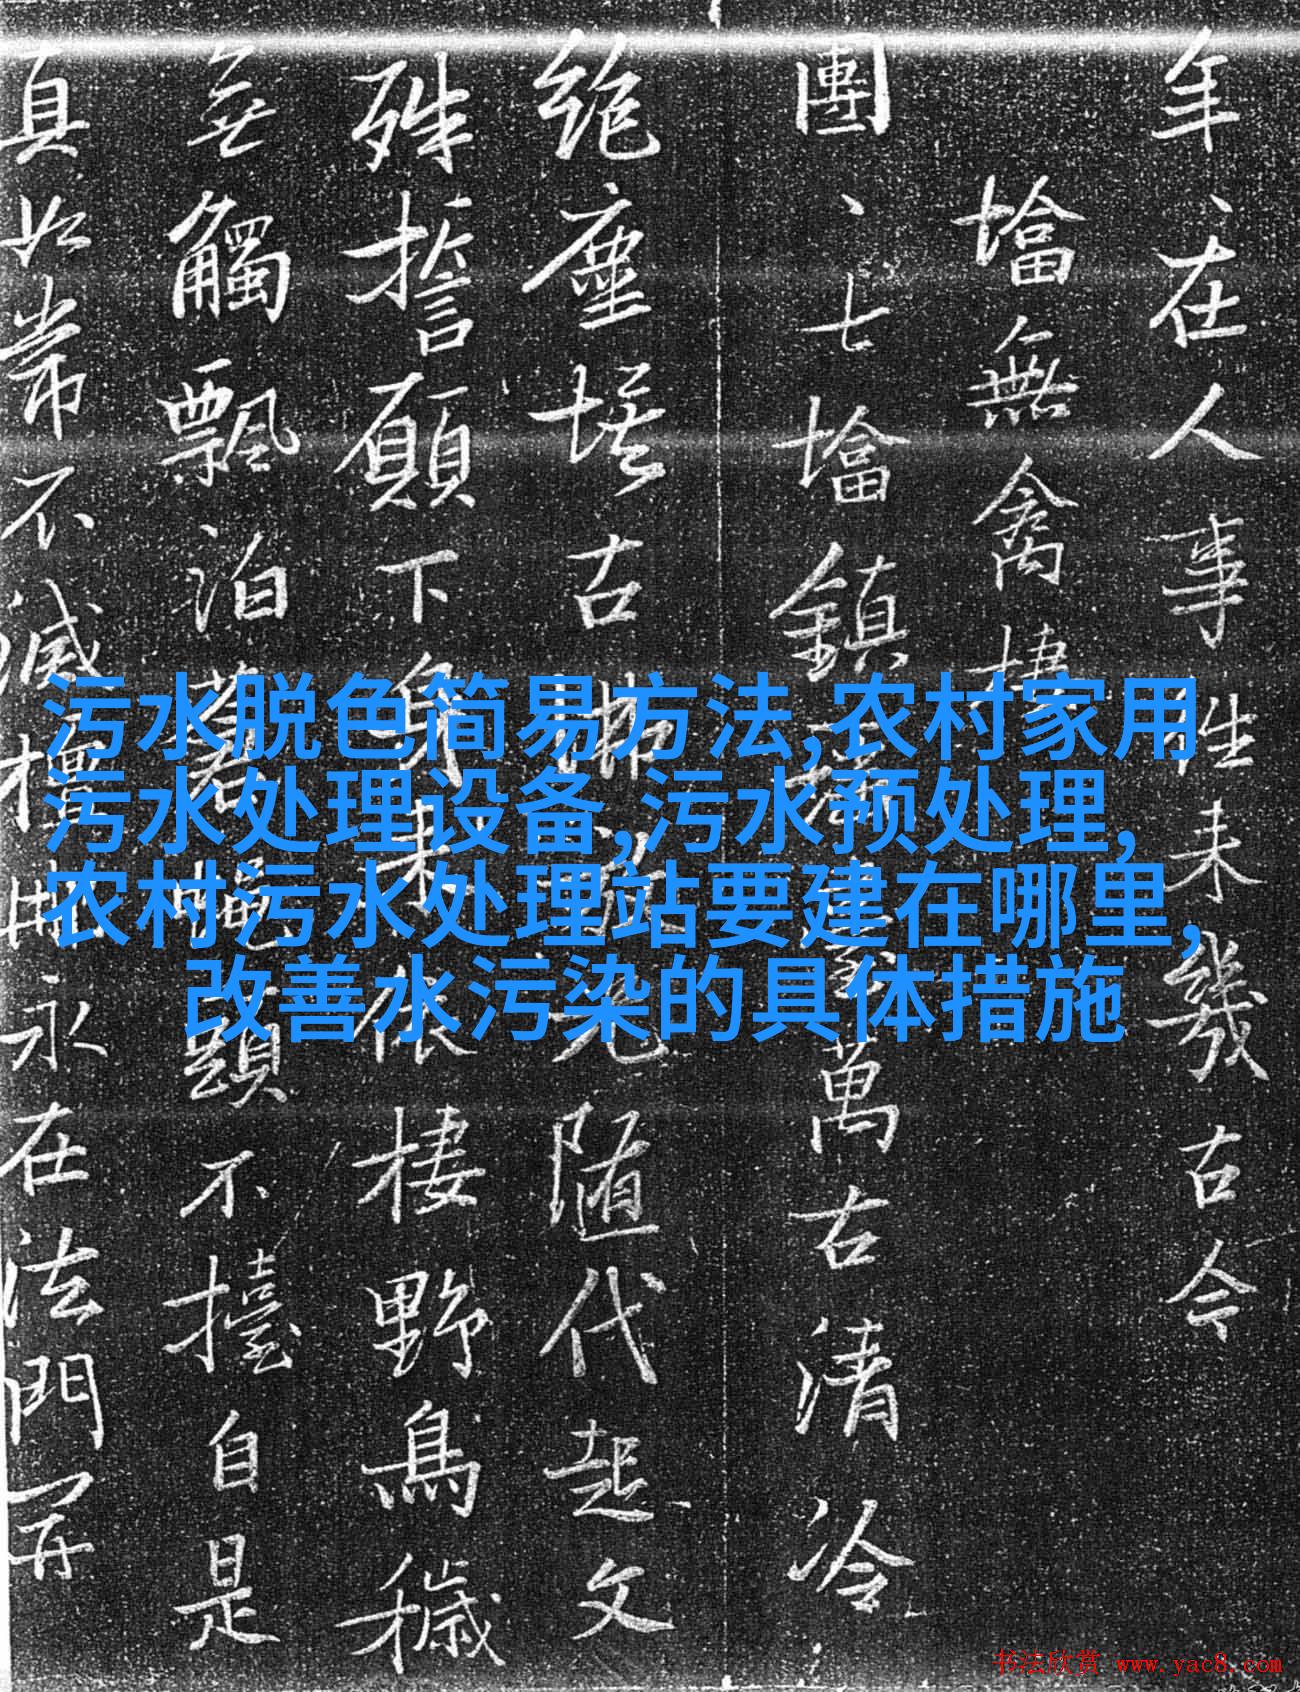 污水脱色简易方法,农村家用
污水处理设备,污水预处理,
农村污水处理站要建在哪里,
改善水污染的具体措施
年、在人事未幾古今
墖無禽棲
團、七墖鎮萬古清冷
絶塵埃古隨代起文
殊願下棲野鳥穢
無觸飄泊頭不擡自是
真如常不滅永在法門
书法欣赏 www.yac8.com